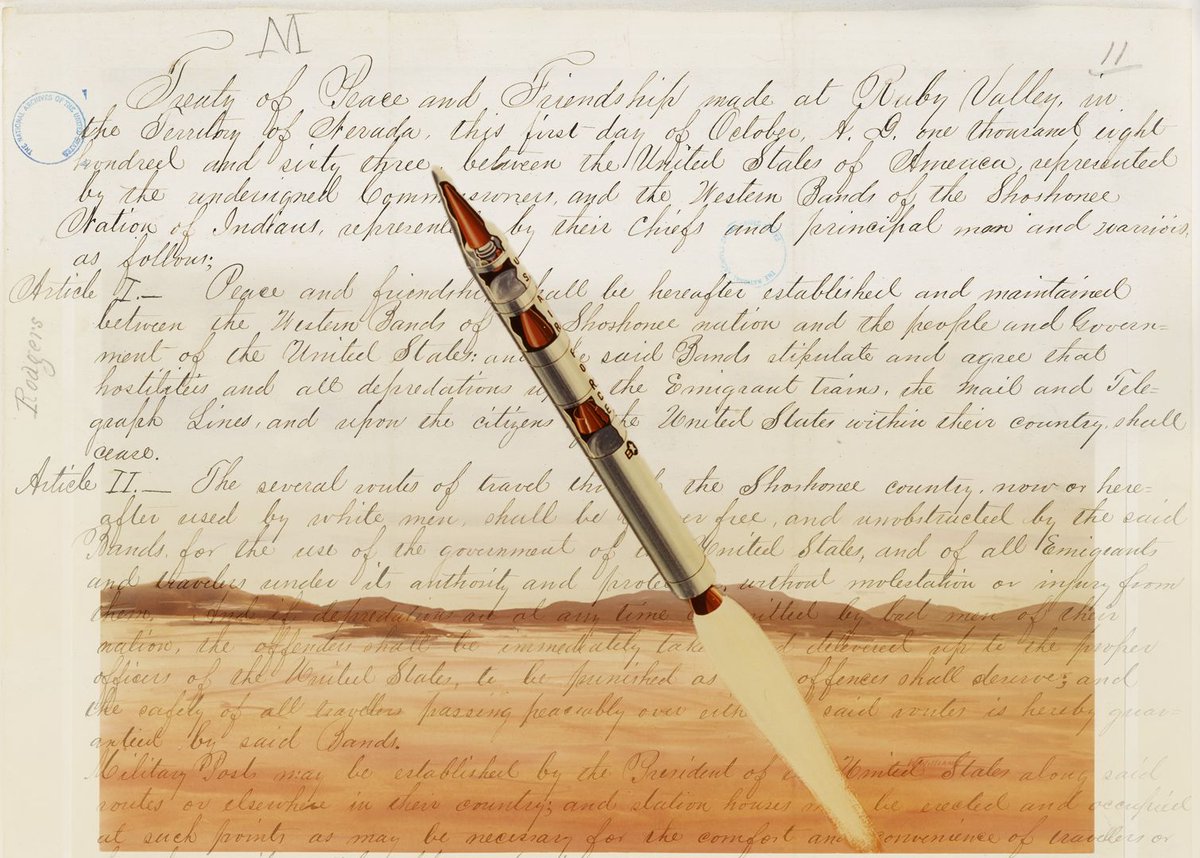 M
11
Treaty of Peace and Friendship made at Ruby Valley, in
the Territory of Nevada, this first day of October, A. D. one thousand eight
hundred and sixty three, between the United States of America, represented
by the undersigned Commissioners, and the Western Bands of the Shoshonee
Nation of Indians, represented by their Chiefs and principal men and warriors,
as follows;
THE NATIONAL ARCHIVES OF THE UNITED STATES
Article I.— Peace and friendship shall be hereafter established and maintained
between the Western Bands of Shoshonee nation and the people and Govern=
ment of the United States; and the said Bands stipulate and agree that
hostilities and all depredations the Emigrant trains, the Mail and Tele=
graph Lines, and upon the citizens the United States within their country, shall
cease.
Rodgers
U.S. AIR FORCE
Article II.— The several routes of travel the Shoshonee country, now or here=
after used by white men, shall be free, and unobstructed by the said
Bands, for the use of the government of United States, and of all Emigrants
and travelers under its authority and without molestation or injury from
them. And if depredations are at any time by bad men of their
nation, the offenders shall be immediately delivered up to the proper
officers of the United States, to be punished as offences shall deserve; and
the safety of all travelers passing peaceably over said routes is hereby guar=
antied by said Bands.
Military Posts may be established by the President of United States along said
routes or elsewhere in their country; and station houses be erected and occupied
at such points as may be necessary for the comfort and convenience of travelers or